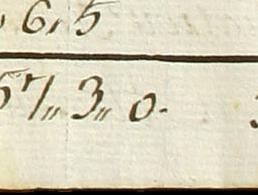 6,,5
57,,3,,0.